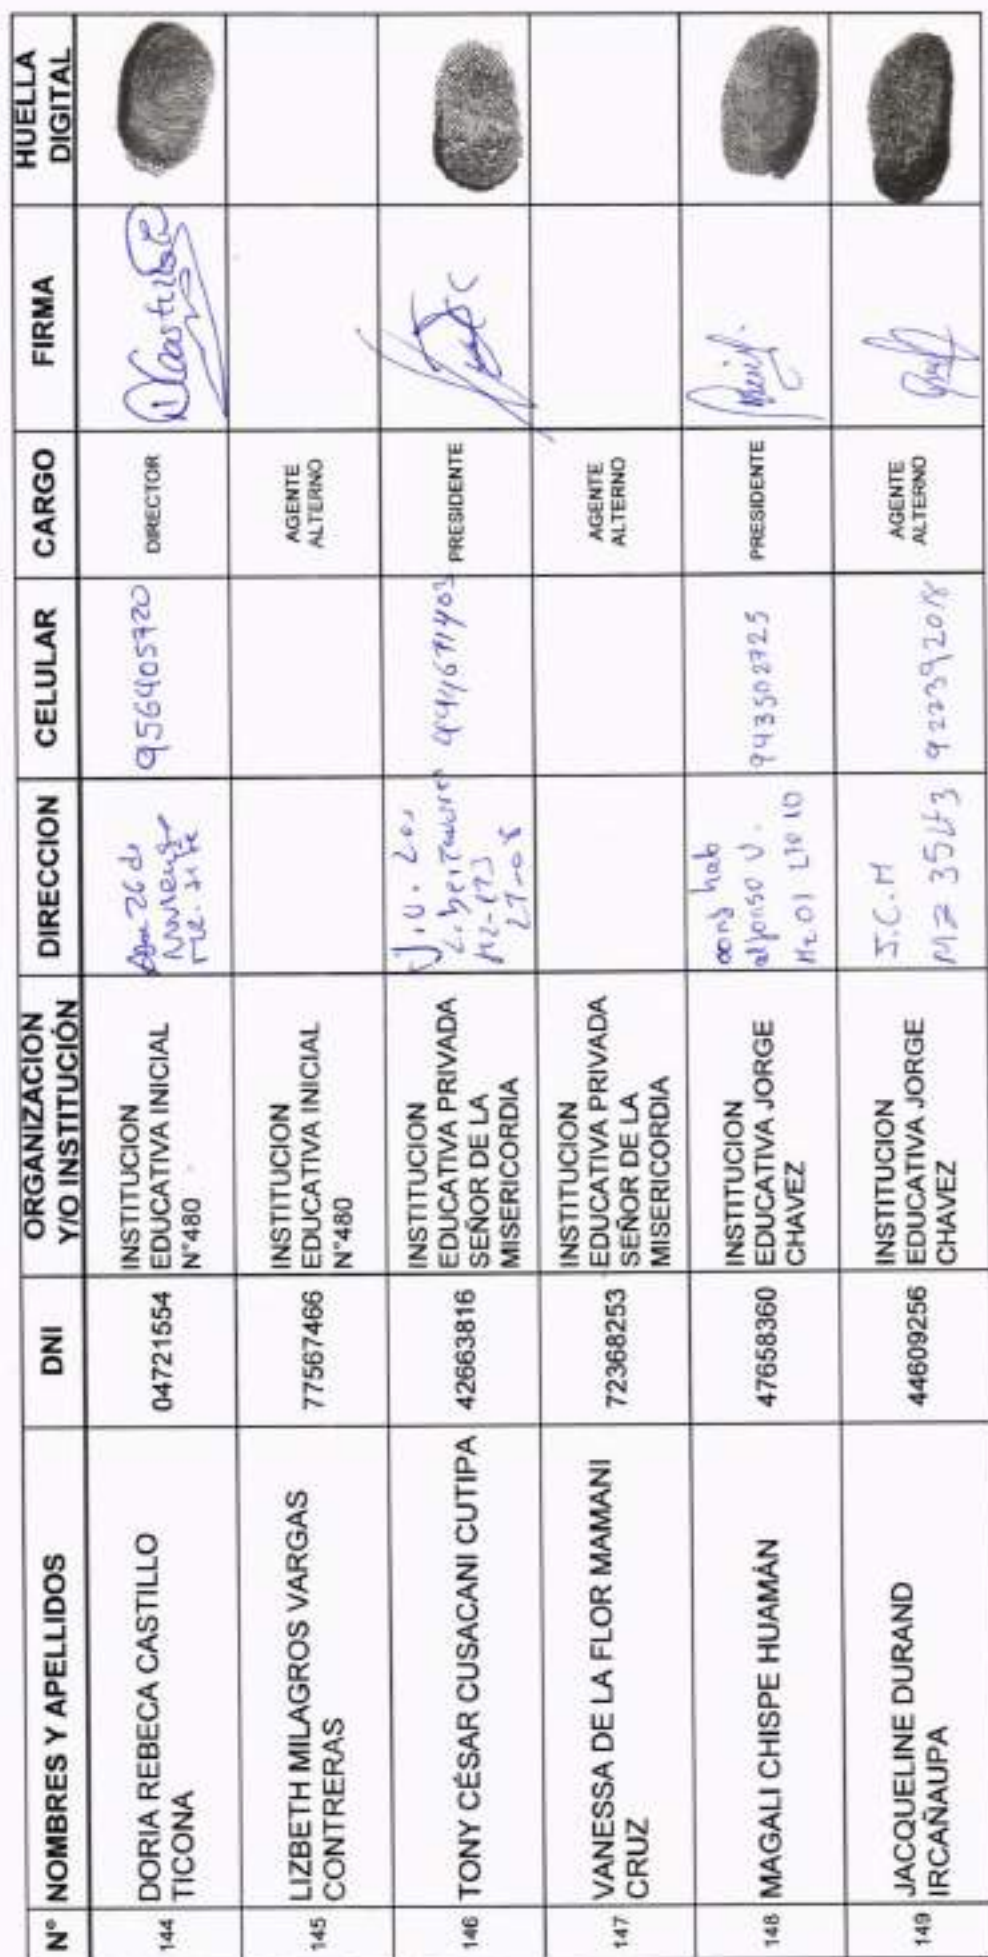 N° NOMBRES Y APELLIDOS DNI ORGANIZACION Y/O INSTITUCIÓN DIRECCION CELULAR CARGO FIRMA HUELLA DIGITAL
144 DORIA REBECA CASTILLO TICONA 04721554 INSTITUCION EDUCATIVA INICIAL N°480 26 de 956405720 DIRECTOR
145 LIZBETH MILAGROS VARGAS CONTRERAS 77567466 INSTITUCION EDUCATIVA INICIAL N°480 AGENTE ALTERNO
146 TONY CÉSAR CUSACANI CUTIPA 42663816 INSTITUCION EDUCATIVA PRIVADA SEÑOR DE LA MISERICORDIA PRESIDENTE
147 VANESSA DE LA FLOR MAMANI CRUZ 72368253 INSTITUCION EDUCATIVA PRIVADA SEÑOR DE LA MISERICORDIA AGENTE ALTERNO
148 MAGALI CHISPE HUAMÁN 47658360 INSTITUCION EDUCATIVA JORGE CHAVEZ hab alfonso U. 943502725 PRESIDENTE
149 JACQUELINE DURAND IRCAÑAUPA 44609256 INSTITUCION EDUCATIVA JORGE CHAVEZ J.C.M MZ 35 Lt 3 922392018 AGENTE ALTERNO